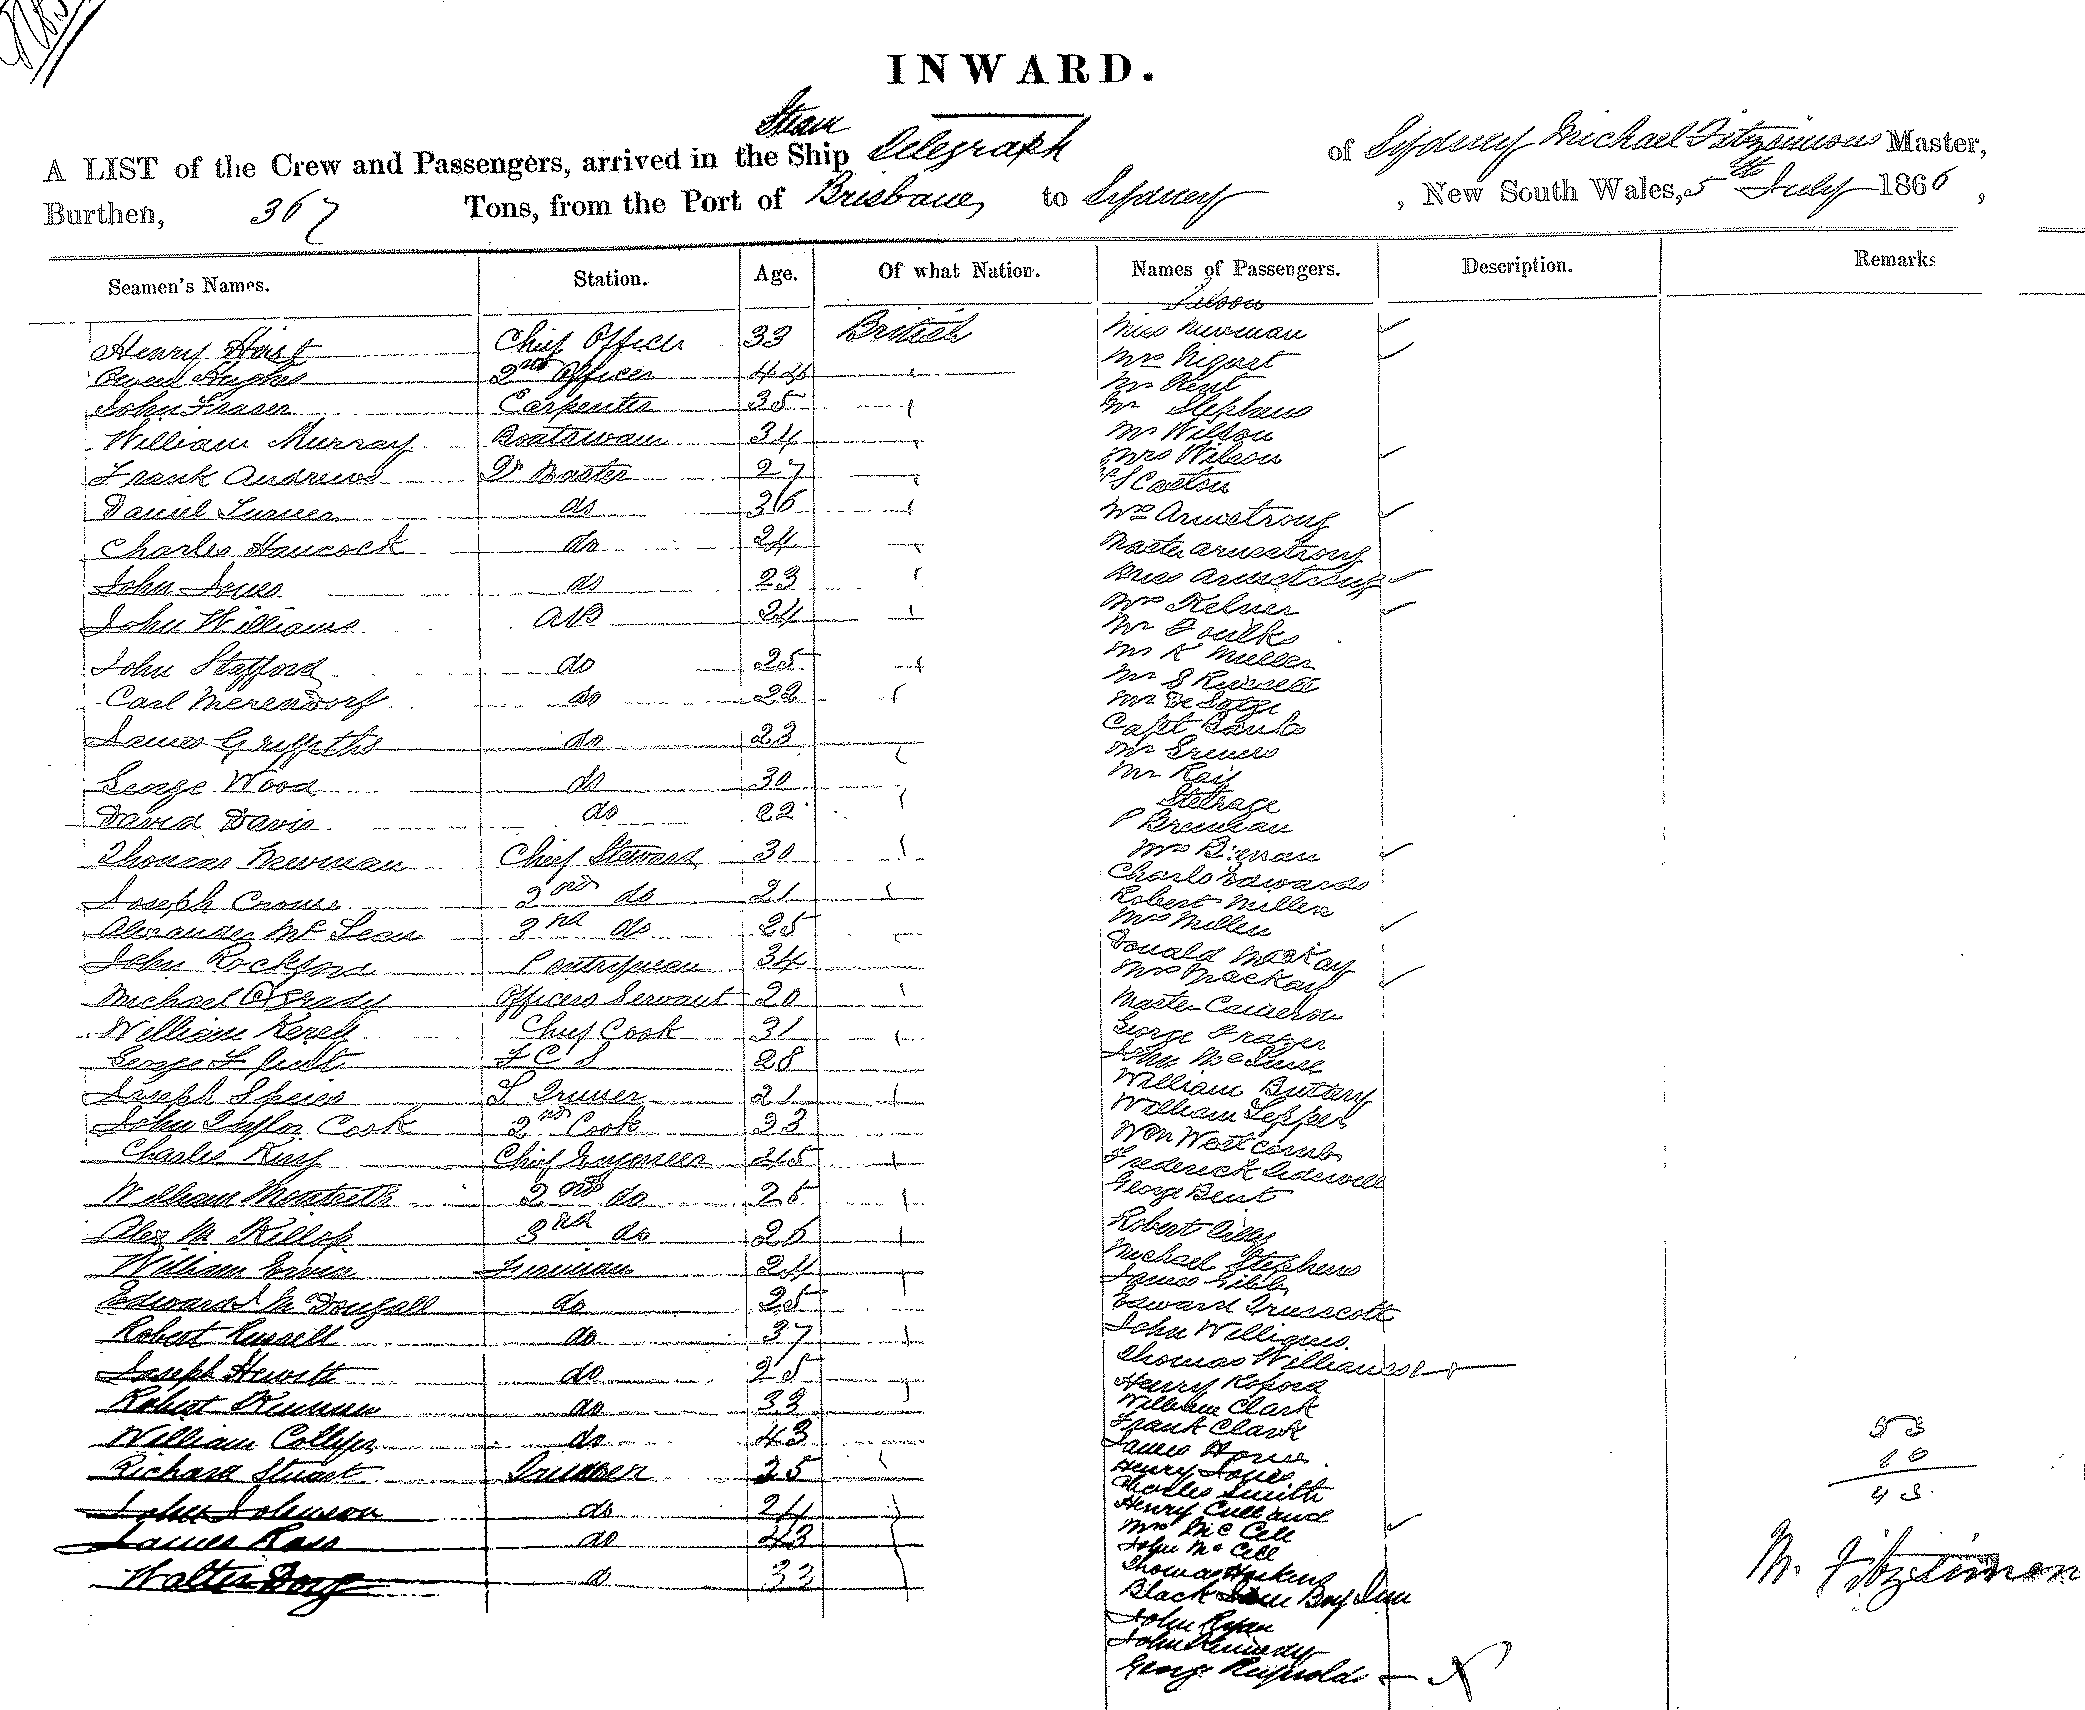 INWARD.
Steam
A LIST of the Crew and Passengers, arrived in the Ship Telegraph of Sydney Michael Fitzsimons Master,
Burthen, 367 Tons, from the Port of Brisbane, to Sydney, New South Wales, 5th July 1866,
Seamen's Names. Station. Age. Of what Nation. Names of Passengers. Description. Remarks
Saloon
Henry Hirst Chief Officer 33 British
Owen Hughes 2nd Officer 44
John Fraser Carpenter 35
William Murray Boatswain 34
Frank Andrews Qr Master 27
Daniel Turner do 36
Charles Hancock do 24
John Jones do 23
John Williams AB 24
John Stafford do 25
Carl Merendorf do 22
James Griffiths do 23
George Wood do 30
David Davis do 22
Thomas Newman Chief Steward 30
Joseph Crowe 2nd do 21
Alexander McLean 3rd do 25
John Rockford Pantryman 34
Michael O'Grady Officers Servant 20
William Chief Cook 31
George F F C S 28
Joseph Spiers S Trimmer 21
John Taylor Cook 2nd Cook 33
Charles King Chief Engineer 45
William Monteith 2nd do 25
Alex M Killop 3rd do 26
William Fireman 24
Edward McDougall do 25
Robert Russell do 37
Joseph Hewitt do 25
Robert do 33
William do 43
Richard Stuart Trimmer 25
John Johnson do 24
James Ross do 43
Walter do 33
Miss Newman
Mrs
Mr Kent
Mr Stephens
Mr Wilson
Mrs Wilson
Mrs Armstrong
Master Armstrong
Miss Armstrong
Mrs Kelner
Mr Foulks
Mr K Muller
Mr S Russell
Mr De Satge
Capt Banks
Mr
Mr Ray
Steerage
P Brennan
Mrs
Charles Edwards
Robert Millen
Mrs Millen
Donald McKay
Mrs Mackay
Master Cameron
George Frazer
John
William Buttery
William Lepper
Wm Westcomb
Frederick
George Bent
Robert
Michael Stephens
James Gibb
Edward Trusscott
John Williams
Thomas Williams
Henry
William Clark
Frank Clark
James
Henry Jones
Charles Smith
Henry Culland
Mrs McCell
John McCell
Thomas Hoskins
Black Boy
John Ryan
John Kennedy
George Reynolds
53
10
43
M. Fitzsimon